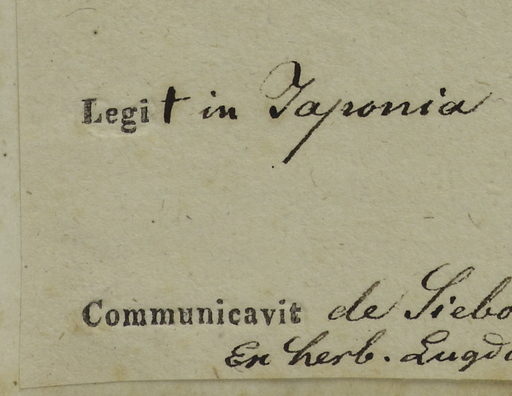 Legit in Japonia
Communicavit de Siebo
Ex herb. Lugd